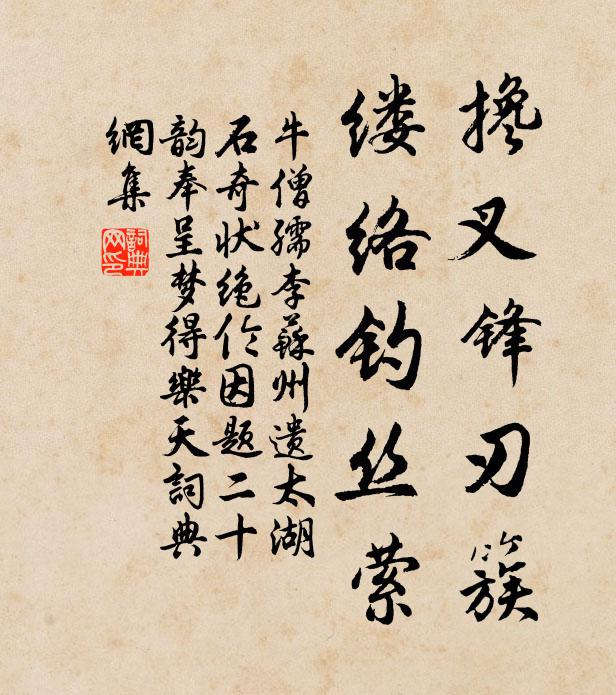 搀叉锋刃簇
缕络钓丝萦
牛僧孺李蘇州遗太湖
石奇状绝伦因题二十
韵奉呈梦得樂天詞典
網集
詞典
网印